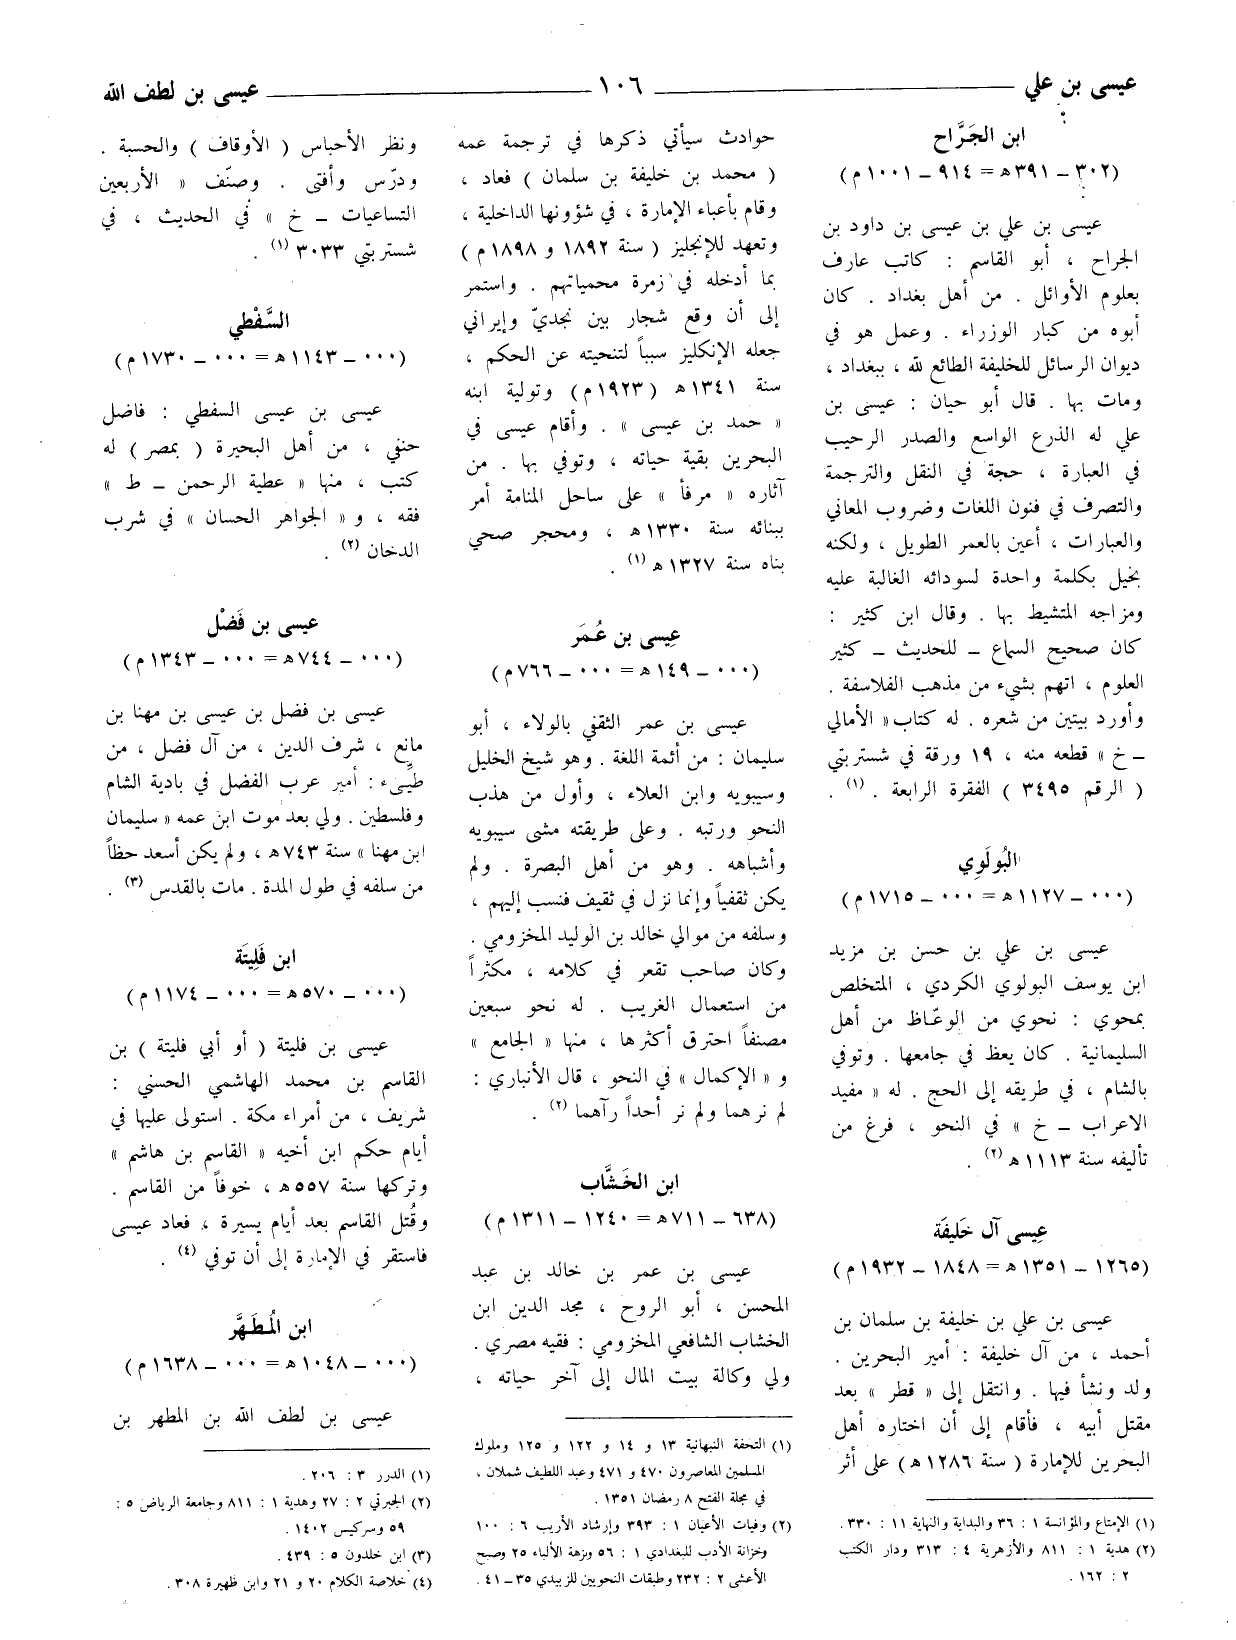 عيسى بن علي ١٠٦ عيسى بن لطف الله
ابن الجَرَّاح
(٣٠٢ – ٣٩١ ه = ٩١٤ – ١٠٠١ م)
عيسى بن علي بن عيسى بن داود بن
الجراح ، أبو القاسم : كاتب عارف
بعلوم الأوائل . من أهل بغداد . كان
أبوه من كبار الوزراء . وعمل هو في
ديوان الرسائل للخليفة الطائع لله ، ببغداد ،
ومات بها . قال أبو حيان : عيسى بن
علي له الذرع الواسع والصدر الرحيب
في العبارة ، حجة في النقل والترجمة
والتصرف في فنون اللغات وضروب المعاني
والعبارات ، أعين بالعمر الطويل ، ولكنه
بخيل بكلمة واحدة لسودائه الغالبة عليه
ومزاجه المتشيط بها . وقال ابن كثير :
كان صحيح السماع – للحديث – كثير
العلوم ، اتهم بشيء من مذهب الفلاسفة .
وأورد بيتين من شعره . له كتاب « الأمالي
– خ » قطعه منه ، ١٩ ورقة في شستربتي
( الرقم ٣٤٩٥ ) الفقرة الرابعة . (١) .
البُولَوِي
(٠٠٠ – ١١٢٧ ه = ٠٠٠ – ١٧١٥ م)
عيسى بن علي بن حسن بن مزيد
ابن يوسف البولوي الكردي ، المتخلص
بمحوي : نحوي من الوعّاظ من أهل
السليمانية . كان يعظ في جامعها . وتوفي
بالشام ، في طريقه إلى الحج . له « مفيد
الاعراب – خ » في النحو ، فرغ من
تأليفه سنة ١١١٣ ه (٢) .
عِيسى آل خَليفَة
(١٢٦٥ – ١٣٥١ ه = ١٨٤٨ – ١٩٣٢ م)
عيسى بن علي بن خليفة بن سلمان بن
أحمد ، من آل خليفة : أمير البحرين .
ولد ونشأ فيها . وانتقل إلى « قطر » بعد
مقتل أبيه ، فأقام إلى أن اختاره أهل
البحرين للإمارة ( سنة ١٢٨٦ ه ) على أثر
(١) الإمتاع والمؤانسة ١ : ٣٦ والبداية والنهاية ١١ : ٣٣٠.
(٢) هدية ١ : ٨١١ والأزهرية ٤ : ٣١٣ ودار الكتب
٢ : ١٦٢ .
حوادث سيأتي ذكرها في ترجمة عمه
( محمد بن خليفة بن سلمان ) فعاد ،
وقام بأعباء الإمارة ، في شؤونها الداخلية ،
وتعهد للإنجليز ( سنة ١٨٩٢ و ١٨٩٨ م )
بما أدخله في زمرة محمياتهم . واستمر
إلى أن وقع شجار بين نجديّ وإيراني
جعله الإنكليز سبباً لتنحيته عن الحكم ،
سنة ١٣٤١ ه (١٩٢٣ م) وتولية ابنه
« حمد بن عيسى » . وأقام عيسى في
البحرين بقية حياته ، وتوفي بها . من
آثاره « مرفأ » على ساحل المنامة أمر
ببنائه سنة ١٣٣٠ ه ، ومحجر صحي
بناه سنة ١٣٢٧ ه (١) .
عِيسى بن عُمَر
(٠٠٠ – ١٤٩ ه = ٠٠٠ – ٧٦٦ م)
عيسى بن عمر الثقفي بالولاء ، أبو
سليمان : من أئمة اللغة . وهو شيخ الخليل
وسيبويه وابن العلاء ، وأول من هذب
النحو ورتبه . وعلى طريقته مشى سيبويه
وأشباهه . وهو من أهل البصرة . ولم
يكن ثقفياً وإنما نزل في ثقيف فنسب إليهم ،
وسلفه من موالي خالد بن الوليد المخزومي .
وكان صاحب تقعر في كلامه ، مكثراً
من استعمال الغريب . له نحو سبعين
مصنفاً احترق أكثرها ، منها « الجامع »
و « الإكمال » في النحو ، قال الأنباري :
لم نرهما ولم نر أحداً رآهما (٢) .
ابن الخَشَّاب
(٦٣٨ – ٧١١ ه = ١٢٤٠ – ١٣١١ م)
عيسى بن عمر بن خالد بن عبد
المحسن ، أبو الروح ، مجد الدين ابن
الخشاب الشافعي المخزومي : فقيه مصري .
ولي وكالة بيت المال إلى آخر حياته ،
(١) التحفة النبهانية ١٣ و ١٤ و ١٢٢ و ١٢٥ وملوك
المسلمين المعاصرون ٤٧٠ و ٤٧١ وعبد اللطيف شملان ،
في مجلة الفتح ٨ رمضان ١٣٥١ .
(٢) وفيات الأعيان ١ : ٣٩٣ وإرشاد الأريب ٦ : ١٠٠
وخزانة الأدب للبغدادي ١ : ٥٦ ونزهة الألباء ٢٥ وصبح
الأعشى ٢ : ٢٣٢ وطبقات النحويين للزبيدي ٣٥ – ٤١ .
ونظر الأحباس ( الأوقاف ) والحسبة .
ودرّس وأفتى . وصنّف « الأربعين
التساعيات – خ » في الحديث ، في
شستربتي ٣٠٣٣ (١) .
السَّفْطي
(٠٠٠ – ١١٤٣ ه = ٠٠٠ – ١٧٣٠ م)
عيسى بن عيسى السفطي : فاضل
حنفي ، من أهل البحيرة ( بمصر ) له
كتب ، منها « عطية الرحمن – ط »
فقه ، و « الجواهر الحسان » في شرب
الدخان (٢) .
عيسى بن فَضْل
(٠٠٠ – ٧٤٤ ه = ٠٠٠ – ١٣٤٣ م)
عيسى بن فضل بن عيسى بن مهنا بن
مانع ، شرف الدين ، من آل فضل ، من
طيّىء : أمير عرب الفضل في بادية الشام
وفلسطين . ولي بعد موت ابن عمه « سليمان
ابن مهنا » سنة ٧٤٣ ه ، ولم يكن أسعد حظاً
من سلفه في طول المدة . مات بالقدس (٣) .
ابن فَلِيتَة
(٠٠٠ – ٥٧٠ ه = ٠٠٠ – ١١٧٤ م)
عيسى بن فليتة ( أو أبي فليتة ) بن
القاسم بن محمد الهاشمي الحسني :
شريف ، من أمراء مكة . استولى عليها في
أيام حكم ابن أخيه « القاسم بن هاشم »
وتركها سنة ٥٥٧ ه ، خوفاً من القاسم .
وقُتل القاسم بعد أيام يسيرة ، فعاد عيسى
فاستقر في الإمارة إلى أن توفي (٤) .
ابن المُطَهَّر
(٠٠٠ – ١٠٤٨ ه = ٠٠٠ – ١٦٣٨ م)
عيسى بن لطف الله بن المطهر بن
(١) الدرر ٣ : ٢٠٦ .
(٢) الجبرتي ٢ : ٢٧ وهدية ١ : ٨١١ وجامعة الرياض ٥ :
٥٩ وسركيس ١٤٠٢ .
(٣) ابن خلدون ٥ : ٤٣٩.
(٤) خلاصة الكلام ٢٠ و ٢١ وابن ظهيرة ٣٠٨ .